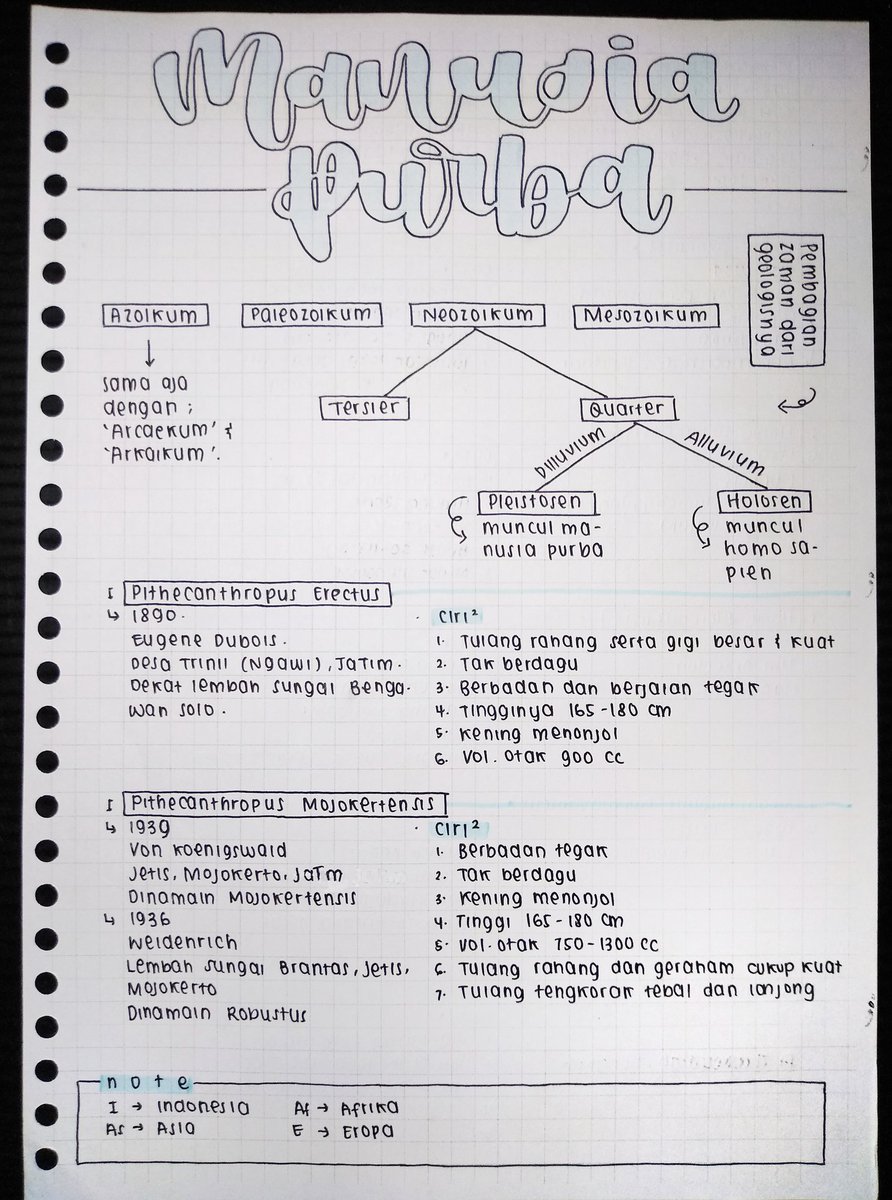 Manusia
Purba
Pembagian
zaman dari
geologisnya
Azoikum
Paleozoikum
Neozoikum
Mesozoikum
sama aja
dengan ;
'Arcaekum' &
'Arkaikum'.
Tersier
Quarter
Dilluvium
Alluvium
Pleistosen
muncul ma-
nusia purba
Holosen
muncul
homo sa-
pien
I Pithecanthropus Erectus
↳ 1890.
Eugene Dubois.
Desa Trinil (Ngawi), JaTim.
Dekat lembah sungai Benga-
wan solo.
· Ciri²
1. Tulang rahang serta gigi besar & kuat
2. Tak berdagu
3. Berbadan dan berjalan tegak
4. Tingginya 165-180 cm
5. Kening menonjol
6. Vol. otak 900 cc
I Pithecanthropus Mojokertensis
↳ 1939
Von Koenigswald
Jetis, Mojokerto, JaTm
Dinamain Mojokertensis
↳ 1936
Weidenrich
Lembah sungai Brantas, Jetis,
Mojokerto
Dinamain Robustus
· Ciri²
1. Berbadan tegak
2. Tak berdagu
3. Kening menonjol
4. Tinggi 165-180 cm
5. Vol. otak 750-1300 cc
6. Tulang rahang dan geraham cukup kuat
7. Tulang tengkorak tebal dan lonjong
note
I → Indonesia
Af → Afrika
As → Asia
E → Eropa